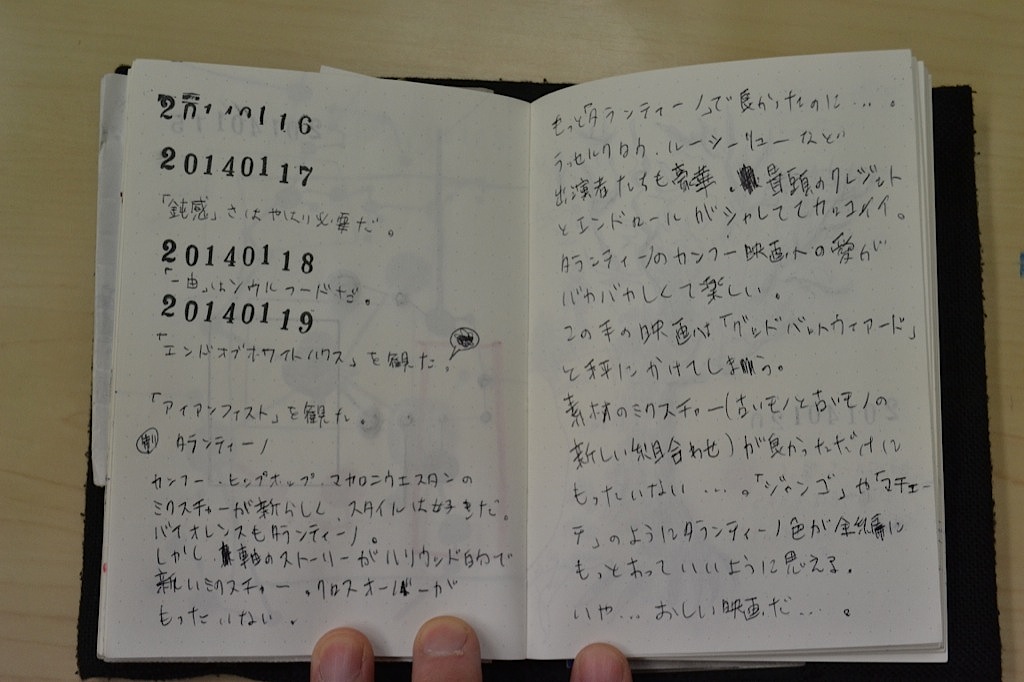 20140116
20140117
「鈍感」さはやはり必要だ。
20140118
「一由」はソウルフードだ。
20140119
「エンドオブホワイトハウス」を観た。
「アイアンフィスト」を観た。
タランティーノ
カンフー・ヒップホップ・マカロニウエスタンの
ミクスチャーが新らしく、スタイルは好きだ。
バイオレンスもタランティーノ。
しかし、軸のストーリーがハリウッド的で
新しいミクスチャー、クロスオーバーが
もったいない。
もっと「タランティーノ」で良かったのに…。
ラッセルクロウ、ルーシーリューなど
出演者たちも豪華。冒頭のクレジット
とエンドロールがシャレててカッコイイ。
タランティーノのカンフー映画への愛が
バカバカしくて楽しい。
この手の映画は「グッドバットウィアード」
と秤にかけてしまう。
素材のミクスチャー(古いモノと古いモノの
新しい組合わせ)が良かっただけに
もったいない…。「ジャンゴ」や「マチェー
テ」のようにタランティーノ色が全編に
もっとあっていいように思える。
いや…おしい映画だ…。